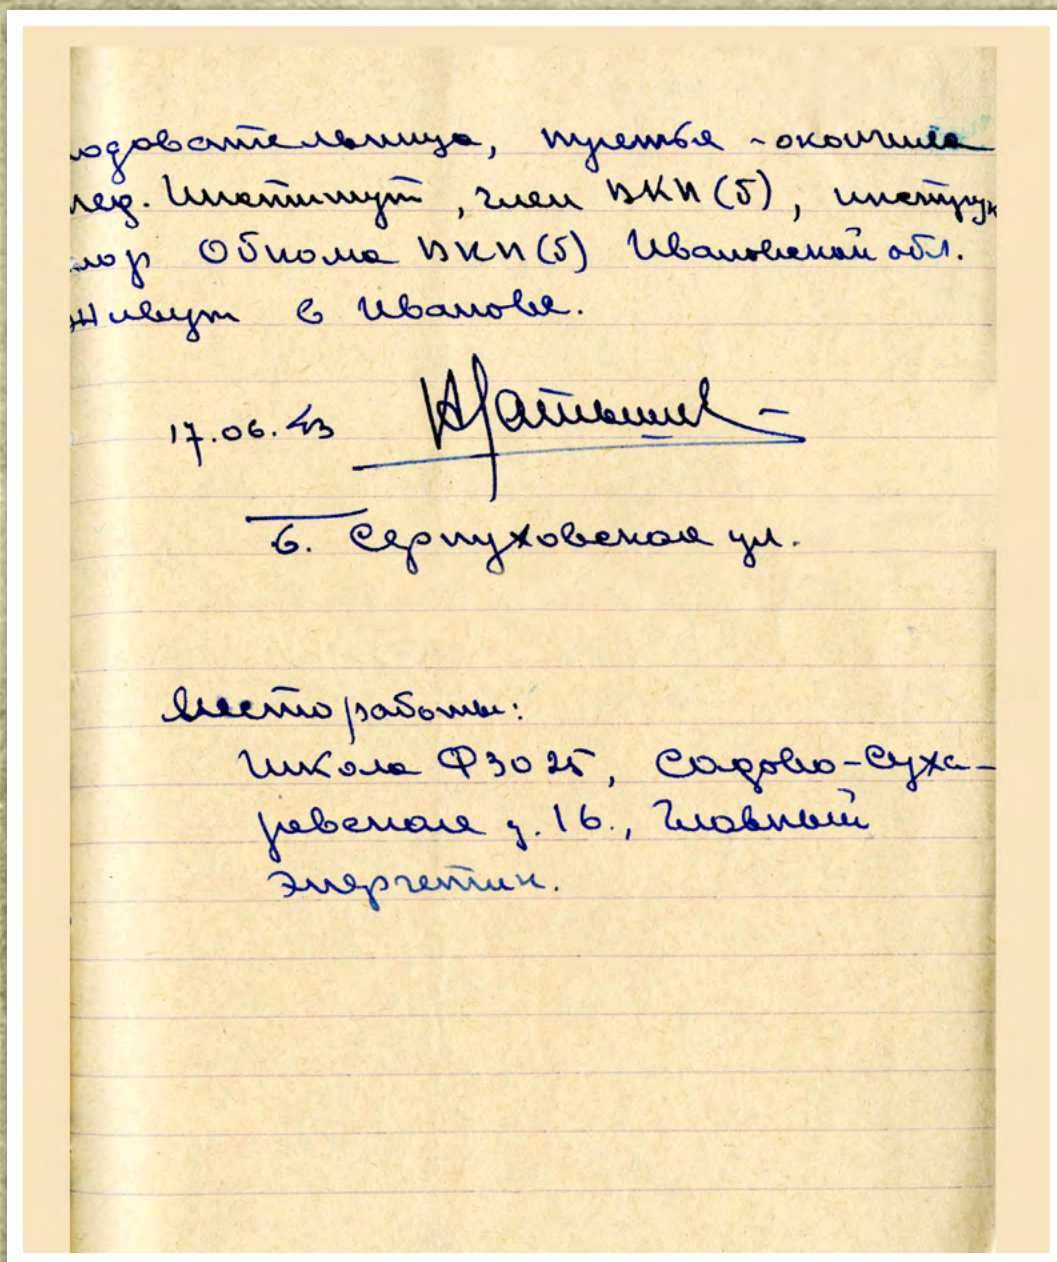 подавательница, третья - окончила
пед. Институт, член ВКП(б), инструк
тор Обкома ВКП(б) Ивановской обл.
Живут в Иванове.
17.06.43
Б. Серпуховская ул.
Место работы:
Школа ФЗО 25, Садово-Суха-
ревская д. 16., Главный
Энергетик.